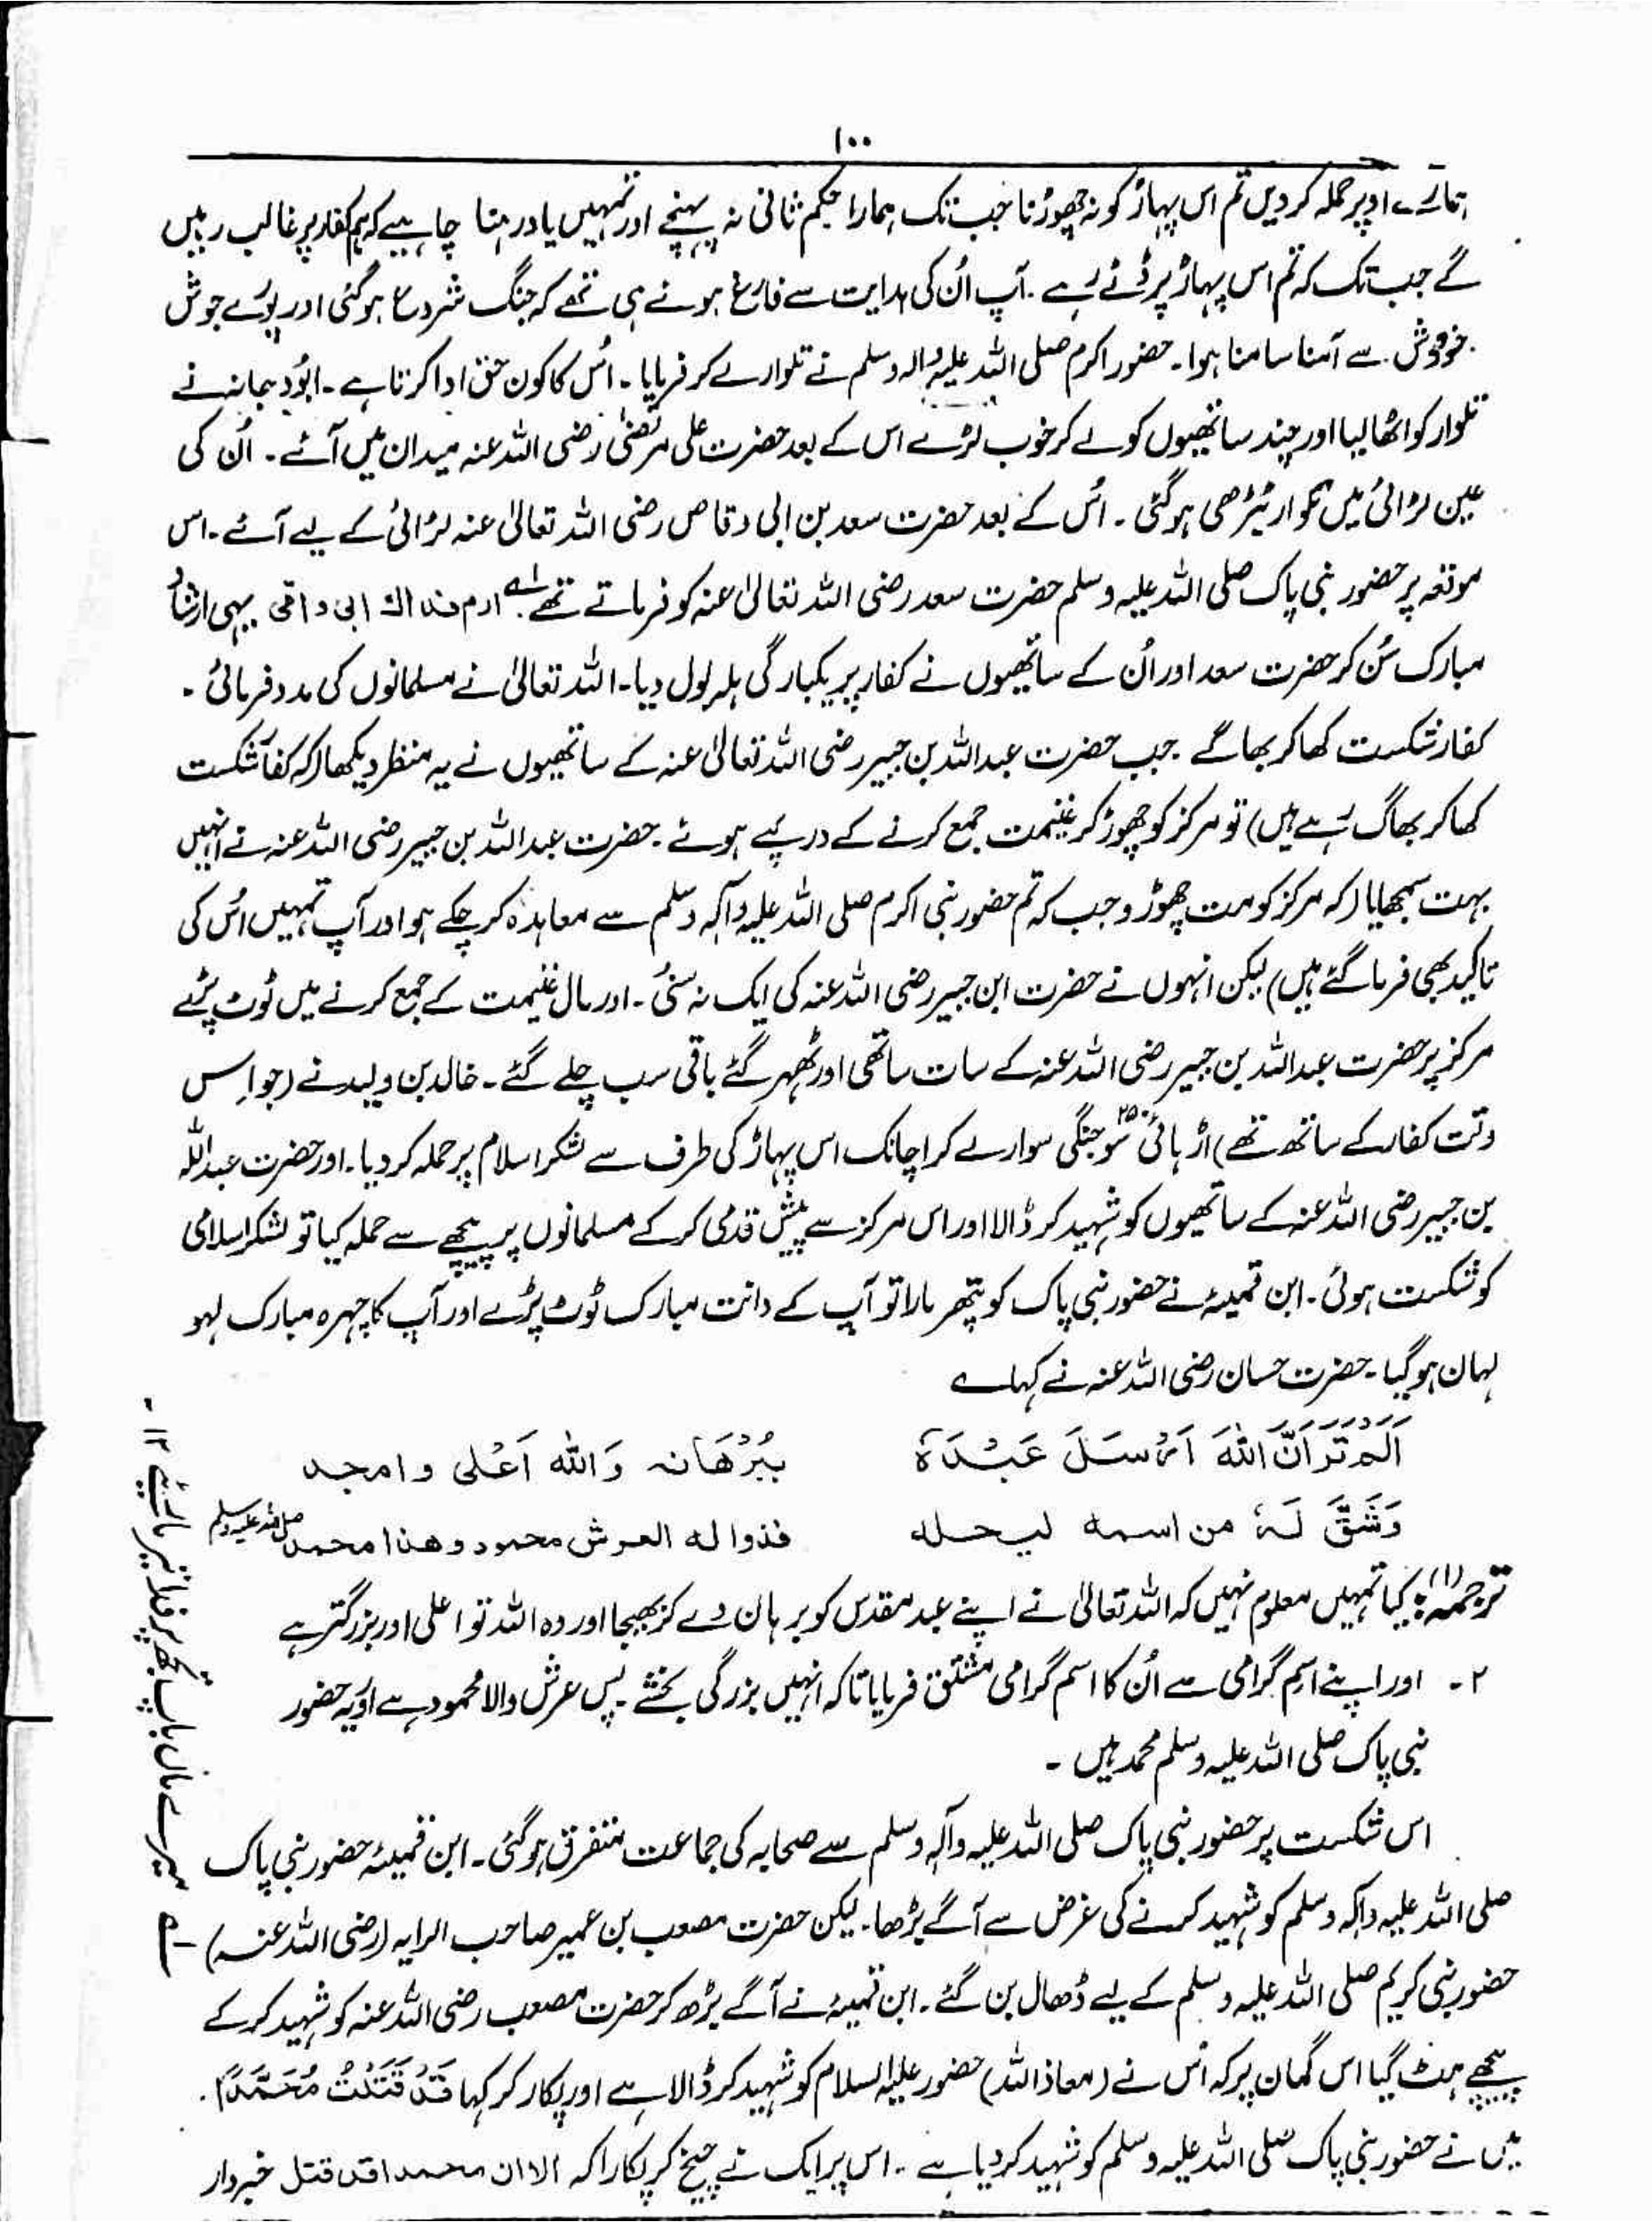 ۱۰۰
ہمارے اوپر حملہ کردیں تم اس پہاڑ کو نہ چھوڑنا جب تک ہمارا حکم ثانی نہ پہنچے اور تمہیں یاد رہنا چاہیے کہ ہم کفار پر غالب رہیں
گے جب تک کہ تم اس پہاڑ پر ڈٹے رہے ۔ آپ اُن کی ہدایت سے فارغ ہوئے ہی تھے کہ جنگ شروع ہوگئی اور پورے جوش
خروش سے آمنا سامنا ہوا۔ حضور اکرم صلی اللہ علیہ والہ وسلم نے تلوار لے کر فرمایا ۔ اُس کا کون حق ادا کرتا ہے ۔ ابُو دجانہ نے
تلوار کو اٹھا لیا اور چند ساتھیوں کو لے کر خوب لڑے اس کے بعد حضرت علی مرتضیٰ رضی اللہ عنہ میدان میں آئے ۔ اُن کی
عین لڑائی میں تلوار ٹیڑھی ہوگئی ۔ اُس کے بعد حضرت سعد بن ابی وقاص رضی اللہ تعالیٰ عنہ لڑائی کے لیے آئے ۔ اس
موقعہ پر حضور نبی پاک صلی اللہ علیہ وسلم حضرت سعد رضی اللہ تعالیٰ عنہ کو فرماتے تھے لہ ارم فداك ابی و امی یہی ارشاد
مبارک سُن کر حضرت سعد اور اُن کے ساتھیوں نے کفار پر یکبارگی ہلہ بول دیا۔ اللہ تعالیٰ نے مسلمانوں کی مدد فرمائی ۔
کفار شکست کھا کر بھاگے جب حضرت عبداللہ بن جبیر رضی اللہ تعالیٰ عنہ کے ساتھیوں نے یہ منظر دیکھا (کہ کفار شکست
کھا کر بھاگ رہے ہیں) تو مرکز کو چھوڑ کر غنیمت جمع کرنے کے درپے ہوئے ۔ حضرت عبداللہ بن جبیر رضی اللہ عنہ نے انہیں
بہت سمجھایا (کہ مرکز کو مت چھوڑو جب کہ تم حضور نبی اکرم صلی اللہ علیہ وآلہ وسلم سے معاہدہ کر چکے ہو اور آپ تمہیں اُس کی
تاکید بھی فرما گئے ہیں) لیکن انہوں نے حضرت ابن جبیر رضی اللہ عنہ کی ایک نہ سنی ۔ اور مال غنیمت کے جمع کرنے میں ٹوٹ پڑے
مرکز پر حضرت عبداللہ بن جبیر رضی اللہ عنہ کے سات ساتھی اور ٹھہر گئے باقی سب چلے گئے ۔ خالد بن ولید نے (جو اِس
وقت کفار کے ساتھ تھے) اڑہائی سَو ۲۵۰ جنگی سوار لے کر اچانک اس پہاڑ کی طرف سے لشکر اسلام پر حملہ کر دیا ۔ اور حضرت عبداللہ
بن جبیر رضی اللہ عنہ کے ساتھیوں کو شہید کر ڈالا اور اس مرکز سے پیش قدمی کر کے مسلمانوں پر پیچھے سے حملہ کیا تو لشکر اسلامی
کو شکست ہوئی ۔ ابن قمیئہ نے حضور نبی پاک کو پتھر مارا تو آپ کے دانت مبارک ٹوٹ پڑے اور آپ کا چہرہ مبارک لہو
لہان ہوگیا ۔ حضرت حسان رضی اللہ عنہ نے کہا ے
اَلَمْ تَرَ اَنَّ اللهَ اَرْسَلَ عَبْدَهٗ بِبُرْهَانہ وَالله اَعْلى وامجد
وَشَقَّ لَهٗ من اسمه ليحله فذوا له العرش محمود وهذا محمد صلی اللہ علیہ وسلم
ترجمہ (۱): کیا تمہیں معلوم نہیں کہ اللہ تعالیٰ نے اپنے عبد مقدس کو برہان دے کر بھیجا اور وہ اللہ تو اعلی اور بزرگتر ہے
۲ ۔ اور اپنے اسم گرامی سے اُن کا اسم گرامی مشتق فرمایا تاکہ انہیں بزرگی بخشے پس عرش والا محمود ہے اور یہ حضور
نبی پاک صلی اللہ علیہ وسلم محمد ہیں ۔
اس شکست پر حضور نبی پاک صلی اللہ علیہ وآلہ وسلم سے صحابہ کی جماعت متفرق ہوگئی ۔ ابن قمیئہ حضور نبی پاک
صلی اللہ علیہ وآلہ وسلم کو شہید کرنے کی غرض سے آگے بڑھا ۔ لیکن حضرت مصعب بن عمیر صاحب الرایہ (رضی اللہ عنہ)
حضور نبی کریم صلی اللہ علیہ وسلم کے لیے ڈھال بن گئے ۔ ابن قمیئہ نے آگے بڑھ کر حضرت مصعب رضی اللہ عنہ کو شہید کر کے
پیچھے ہٹ گیا اس گمان پر کہ اُس نے (معاذ اللہ) حضور علیہ السلام کو شہید کر ڈالا ہے اور پکار کر کہا قَدْ قَتَلْتُ مُحَمَّدًا۔
میں نے حضور نبی پاک صلی اللہ علیہ وسلم کو شہید کر دیا ہے ۔ اس پر ایک نے چیخ کر پکارا کہ الا ان محمدا قد قتل خبردار
لہ میرے ماں باپ تجھ پر فدا تیر ماریئے ۱۲ ۔